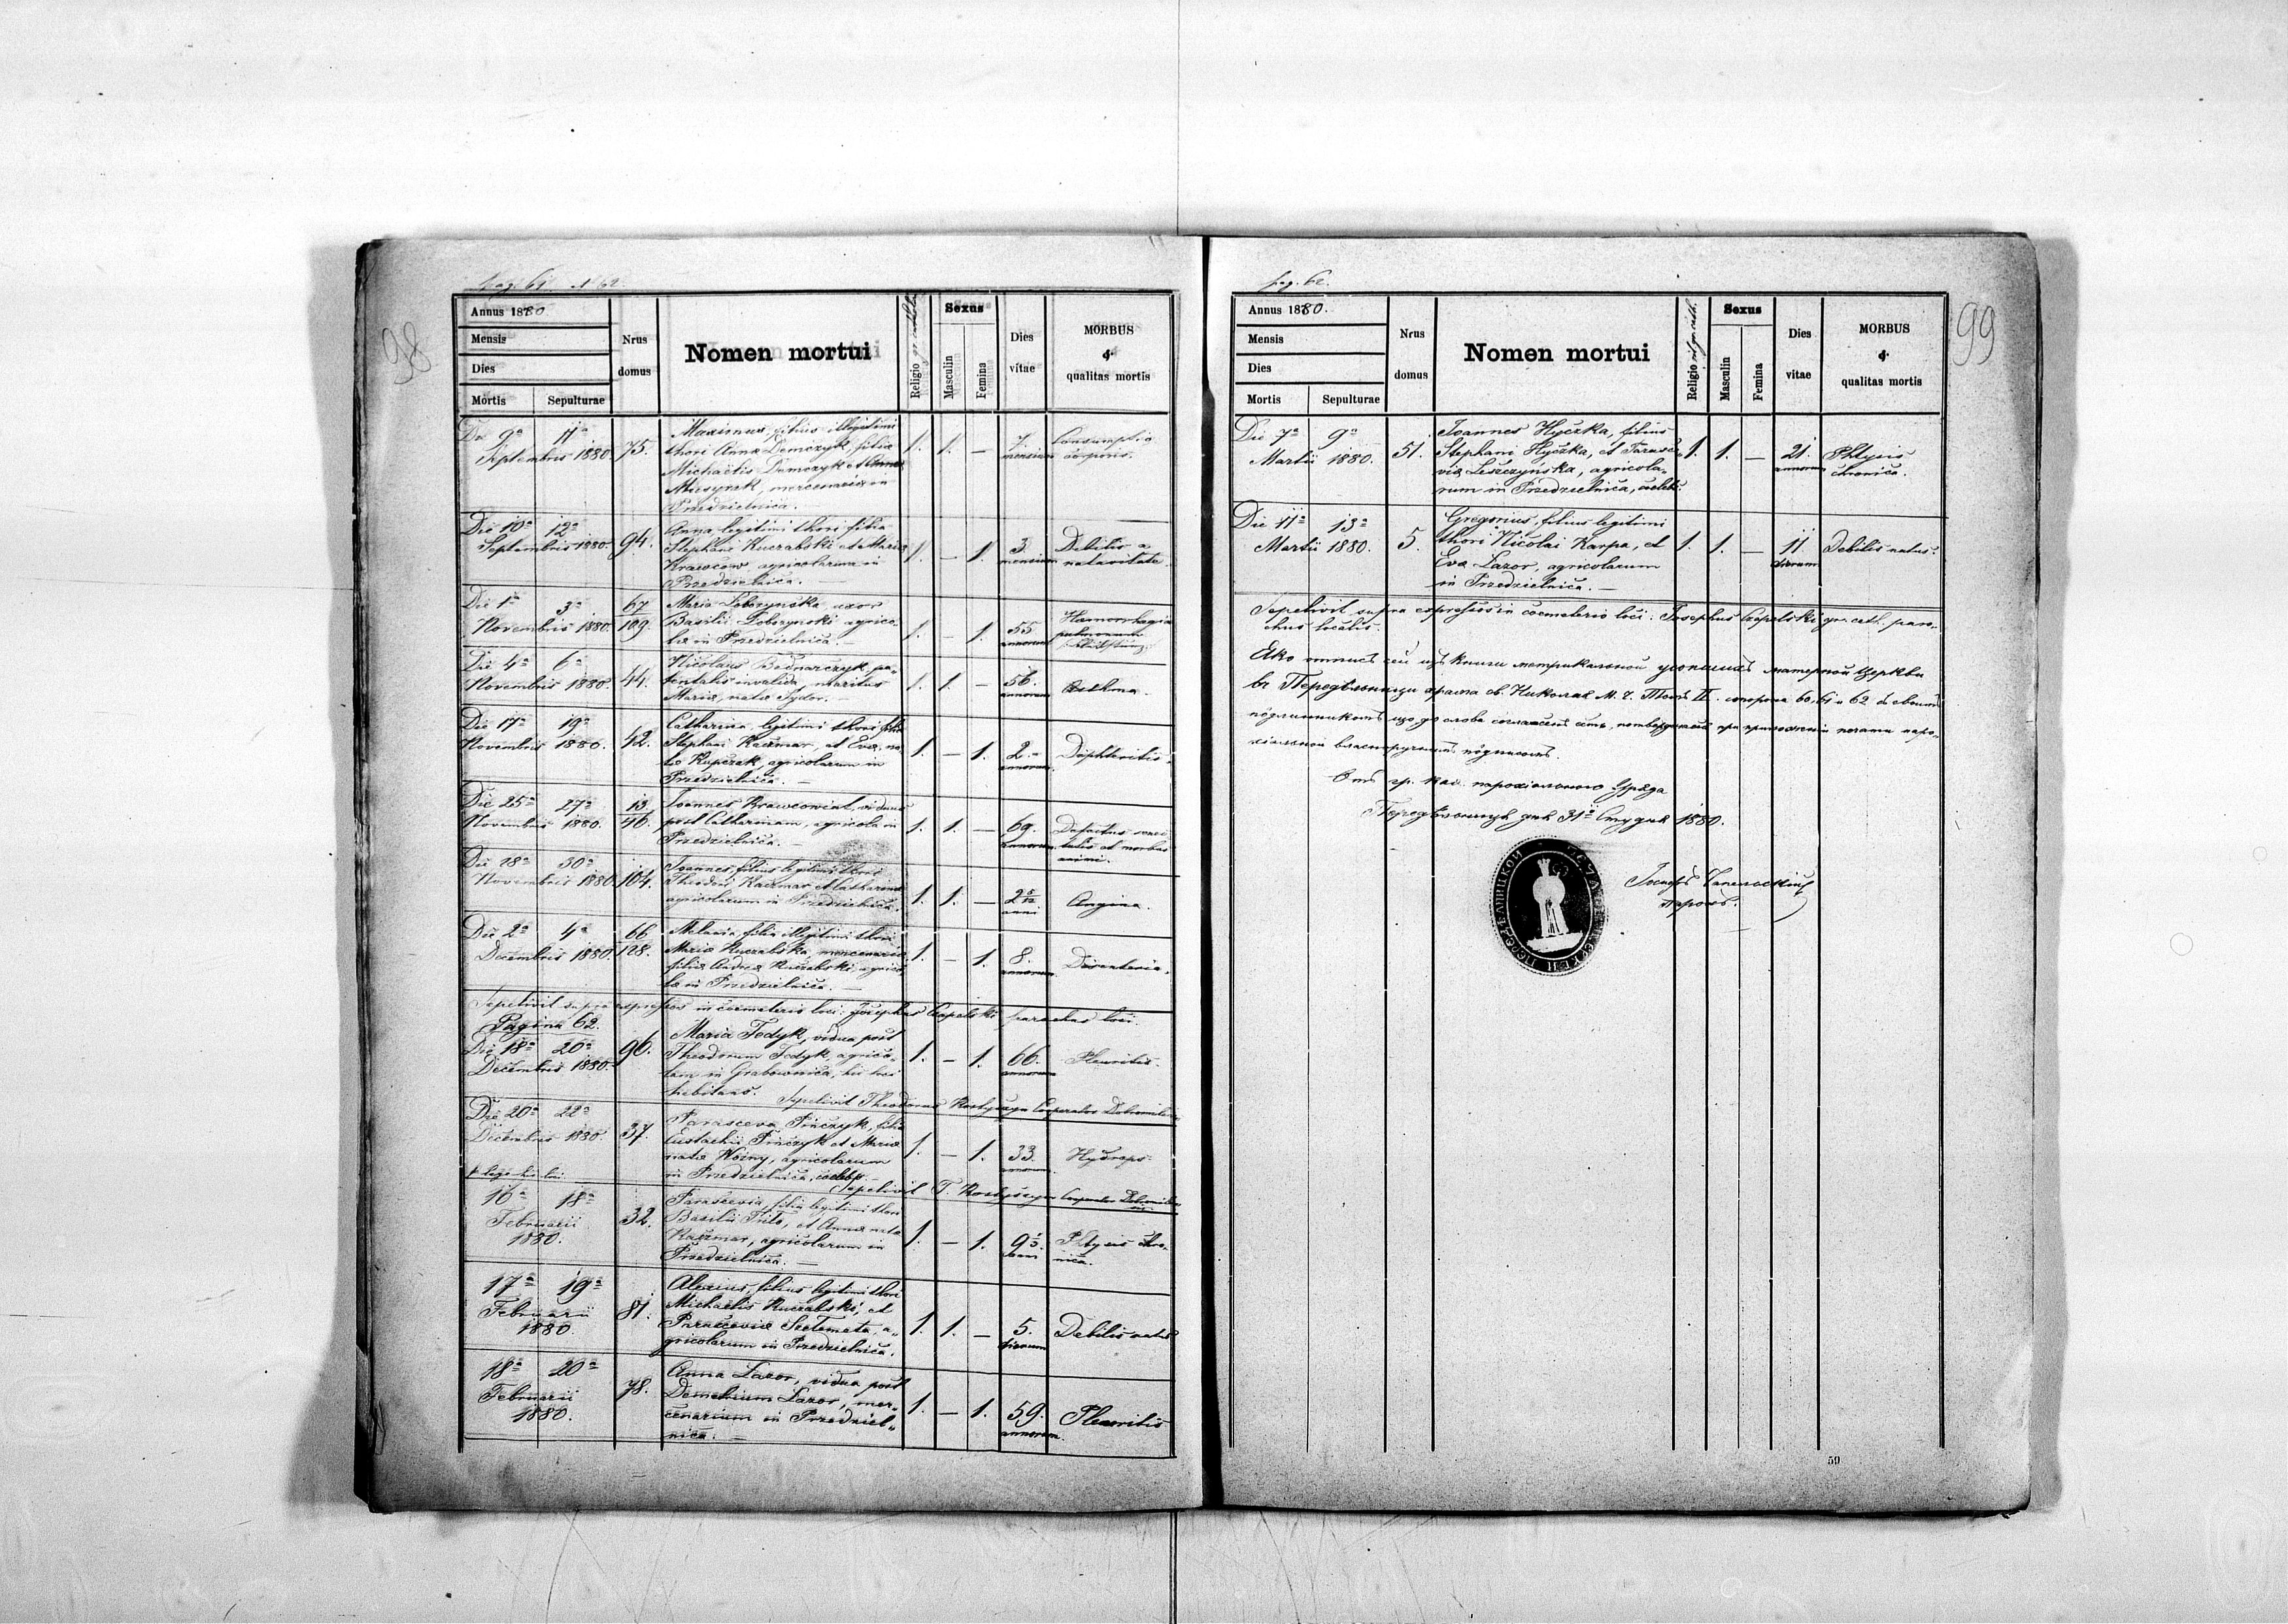 pag. 61. et 62
98
Annus 1880.
Mensis
Dies
Mortis
Sepulturae
Nrus
domus
Nomen mortui
Religio gr. cath.
Sexus
Masculin
Femina
Dies
vitae
MORBUS
&
qualitas mortis
Die 9ª 11ª
Septembris 1880. 75.
Maximus, filius illegitimi
thori Anna Demczyk, filia
Michaelis Demczyk et Anna
mercenaria in
Przedzielnica.
1. 1. — 7. mensium
Consumptio
corporis.
Die 10ª 12ª
Septembris 1880. 94.
Anna legitimi thori filia
Stephani Kuczabski et Maria
Krawców agricolarum in
Przedzielnica. —
1. — 1. 3. mensium
Debilis a
natavitate.
Die 1ª 3ª
Novembris 1880. 67/109.
Maria Dobrzyńska uxor
Basilii Dobrzynski agrico-
lae in Przedzielnica.
1. — 1. 55 annorum
Hamorrhagia
pulmonum
Die 4ª 6ª
Novembris 1880. 44.
Nicolaus Bednarczyk pa-
tentalis invalida, maritus
Maria, nata Fydor.
1. 1. — 56. annorum
Asthma.
Die 17ª 19ª
Novembris 1880. 42.
Catharina legitimi thori filia
Stephani Kaczmar, et Eva, na-
ta Kupczak, agricolarum in
Przedzielnica. —
1. — 1. 2. annorum
Diphteritis.
Die 25ª 27ª
Novembris 1880. 13/46.
Joannes Krawcowiat, viduus
post Catharinam, agricola in
Przedzielnica. —
1. 1. — 69. annorum
Defectus senec-
tutis et morbus
animi.
Die 28ª 30ª
Novembris 1880. 104.
Joannes, filius legitimi thori
Theodori Kaczmar et Catharina
agricolarum in Przedzielnica.
1. 1. — 2 5/12 anni
Angina.
Die 2ª 4ª
Decembris 1880. 66/128.
Melania, filia illegitimi thori
Maria Kuczabska, mercenaria
filia Andrea Kuczabski, agrico-
la in Przedzielnica. —
1. — 1. 8. annorum
Disenteria.
Sepelivit supra expressos in coemeterio loci: Josephus Czapelski parochus loci.
Pagina 62.
Die 18ª 20ª
Decembris 1880. 96.
Maria Fedyk, vidua post
Theodorum Fedyk, agrico-
lam in Grabownica, hic loci
habitans.
1. — 1. 66. annorum
Pleuritis.
Sepelivit Theodorus Kostyszyn Cooperator
Die 20ª 22ª
Decembris 1880. 37.
Parasceva Pińczyk, filia
Eustachii Pińczyk et Maria
nata Woźny, agricolarum
in Przedzielnica, coelebs.
1. — 1. 33. annorum
Hydrops
Sepelivit T. Kostyszyn Cooperator
16ª 18ª
Februarii
1880. 32.
Parascevia, filia legitimi thori
Basilii Fityo, et Anna nata
Kaczmar, agricolarum in
Przedzielnica. —
1. — 1. 9
Phtysis chro-
nica.
17ª 19ª
Februarii
1880. 81.
Alexius, filius legitimi thori
Michaelis Kuczabski, et
Parascevia Szeremeta, a-
gricolarum in Przedzielnica.
1. 1. — 5. dierum
Debilis natus
18ª 20ª
Februarii
1880. 78.
Anna Lazor, vidua post
Demetrium Lazor, mer-
cenarium in Przedziel-
nica. —
1. — 1. 59. annorum.
Pleuritis
pag. 62.
99
Annus 1880.
Mensis
Dies
Mortis
Sepulturae
Nrus
domus
Nomen mortui
Religio rit. gr. cath.
Sexus
Masculin
Femina
Dies
vitae
MORBUS
&
qualitas mortis
Die 7ª 9ª
Martii 1880. 51.
Joannes Hyczka, filius
Stephani Hyczka, et Parasce-
via Leszczyńska, agricola-
rum in Przedzielnica, coelebs.
1. 1. — 21. annorum
Phtysis
chronica.
Die 11ª 13ª
Martii 1880. 5.
Gregorius, filius legitimi
thori Nicolai Karpa, et
Eva Lazor, agricolarum
in Przedzielnica. —
1. 1. — 11 dierum
Debilis natus.
Sepelivit supra expressos in coemeterio loci: Josephus Czapelski gr. cath. paro-
chus localis.
Яко отпись сей изъ книги метрикальной усопшихъ матерной церкви
въ Передѣльници храма св. Николая М. Ч. Томъ II. сторона 60, 61 и 62 съ своимъ
подлинникомъ що до слова согласенъ есть, потверждаесь при приложеніи печати паро-
хіяльной власноручнымъ подписомъ.
Отъ гр. кат. парохіяльного Уряда
Передѣльниця дня 31º Студня 1880.
Іосифъ Чапельскій
парохъ.
59